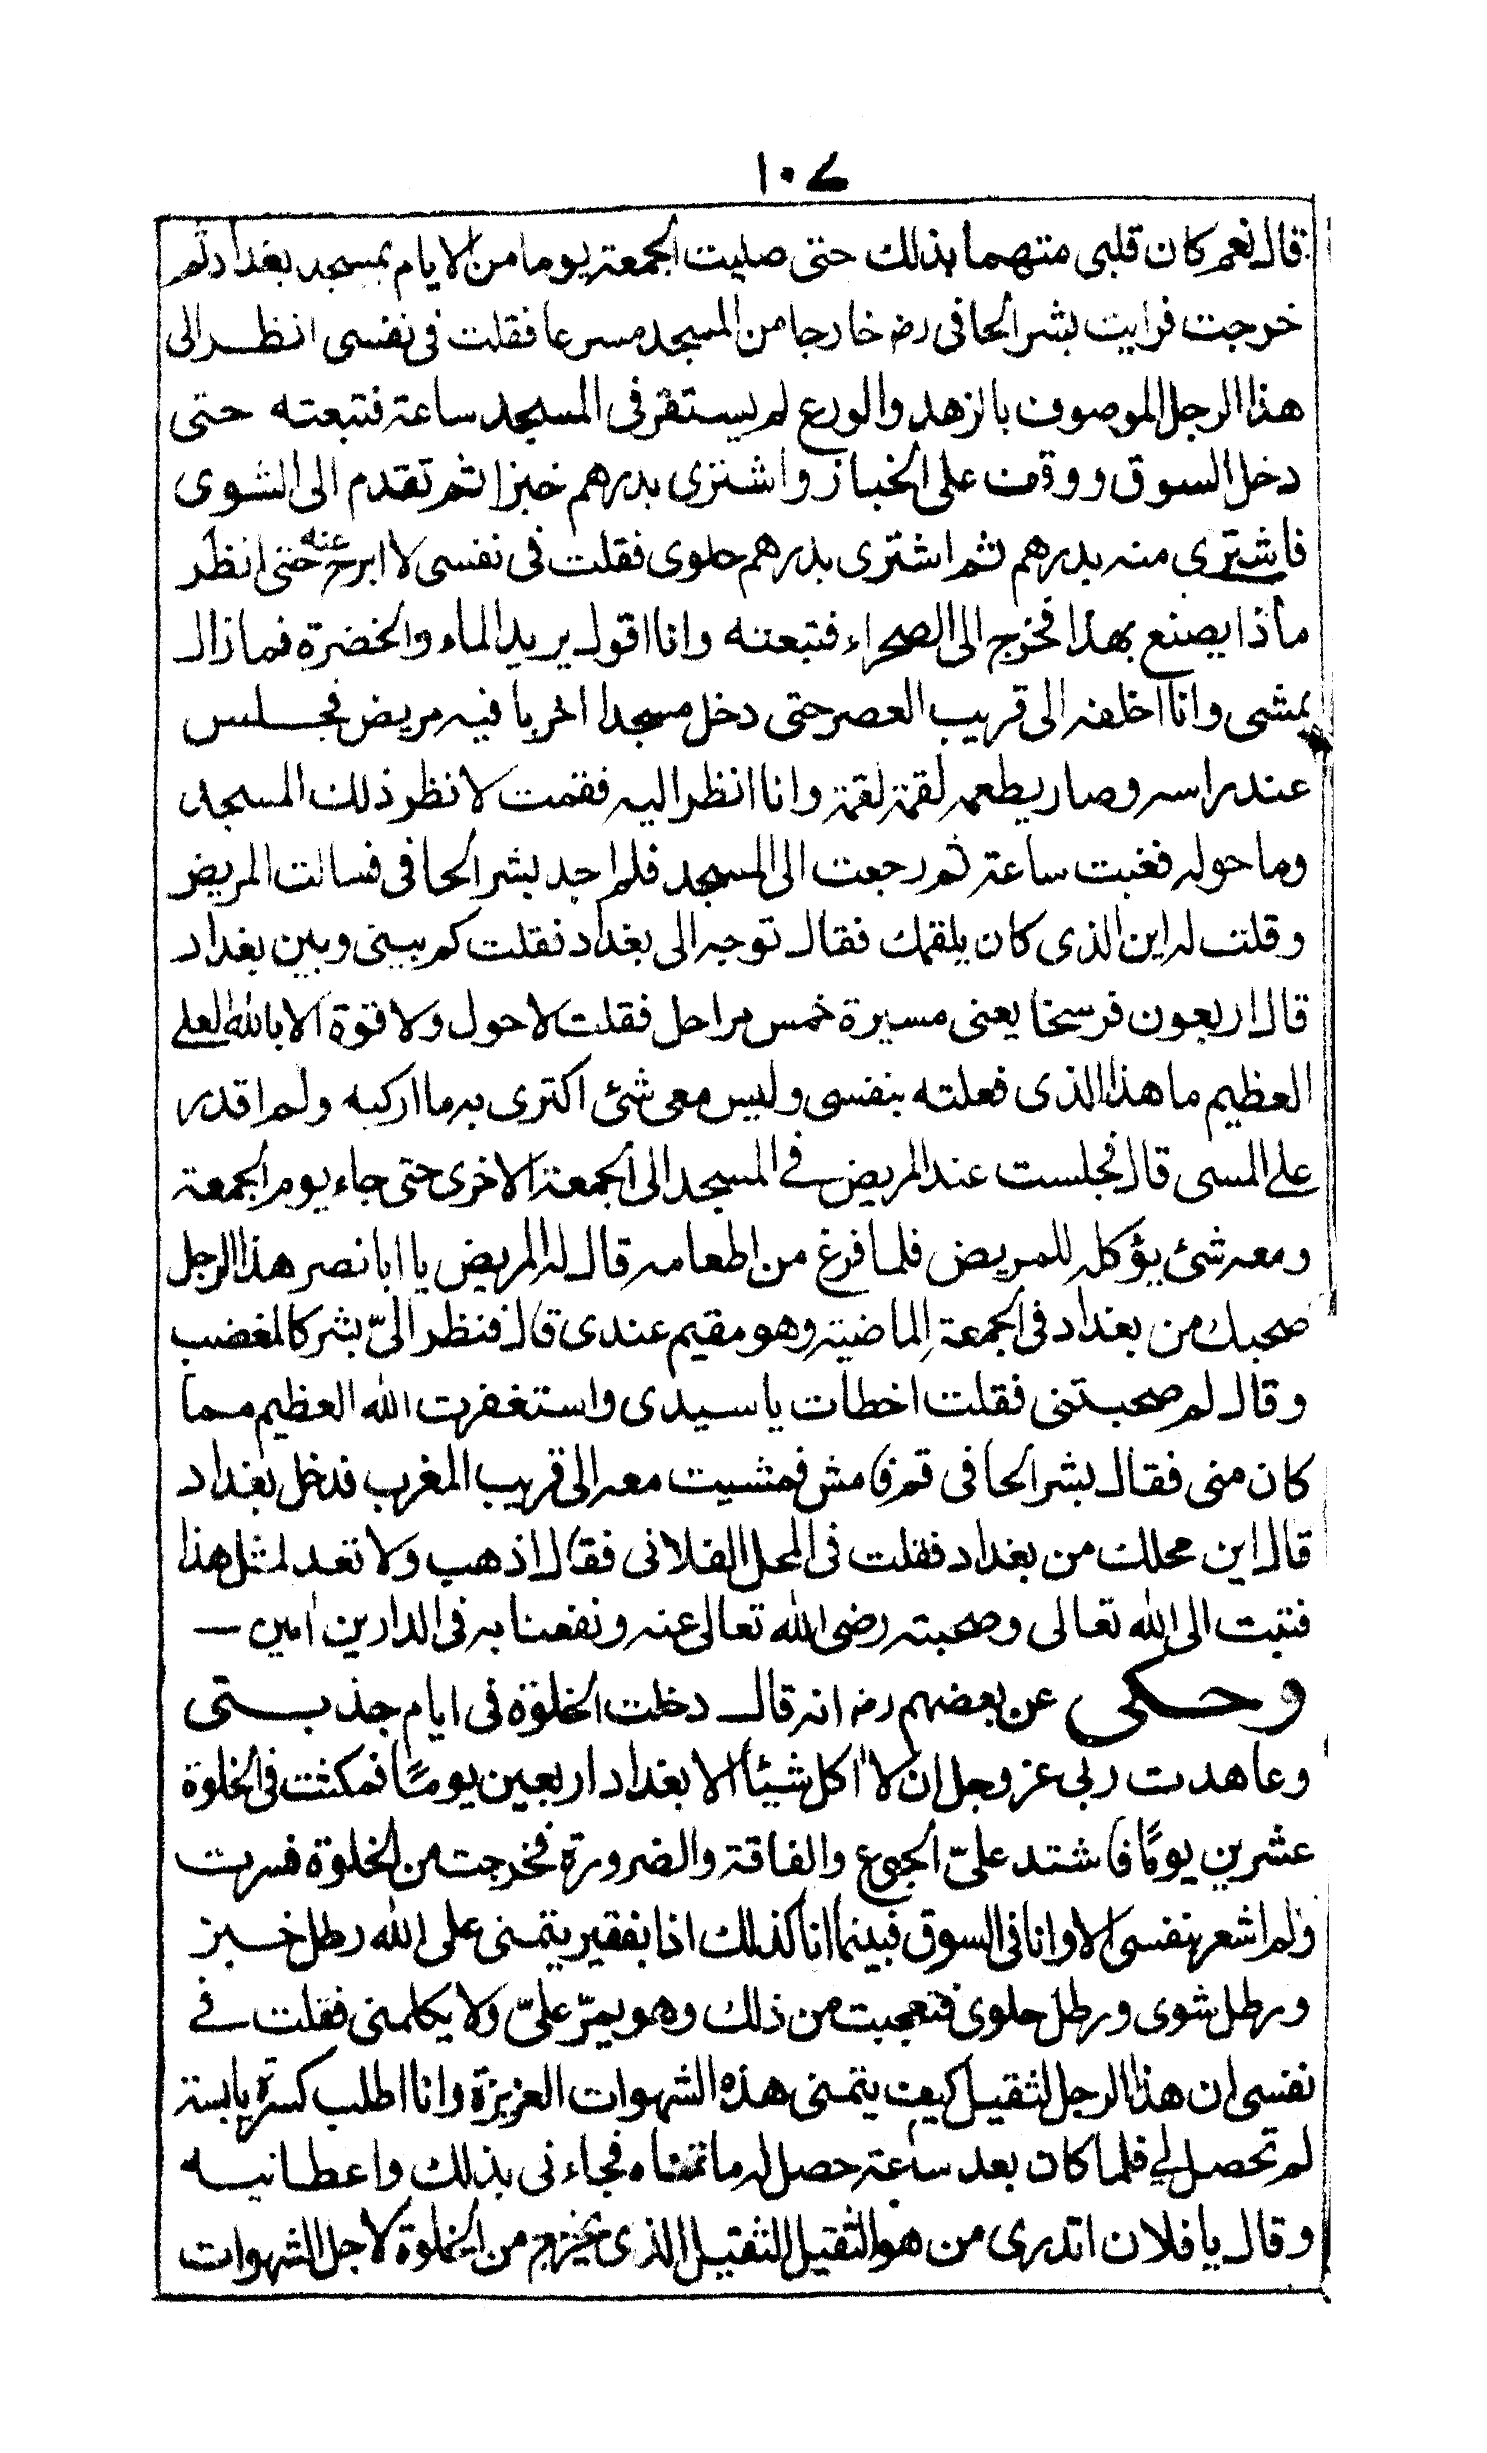 ١٠٧
قال نعم كان قلبى متهما بذلك حتى صليت الجمعة يوما من الايام بمسجد بغداد ثم
خرجت فرايت بشر الحافى رضـ خارجا من المسجد مسرعا فقلت فى نفسى انظر الى
هذا الرجل الموصوف بالزهد والورع لم يستقر فى المسجد ساعة فتبعته حتى
دخل السوق ووقف على الخباز واشترى بدرهم خبزا ثم تقدم الى الشوى
فاشترى منه بدرهم ثم اشترى بدرهم حلوى فقلت فى نفسى لا ابرح عنه حتى انظر
ماذا يصنع بهذا فخرج الى الصحراء فتبعته وانا اقول يريد الماء والخضرة فما زال
يمشى وانا اخلفه الى قريب العصر حتى دخل مسجدا خربا فيه مريض فجلس
عند راسه وصار يطعمه لقمة لقمة وانا انظر اليه فقمت لانظر ذلك المسجد
وما حوله فغبت ساعة ثم رجعت الى المسجد فلم اجد بشر الحافى فسالت المريض
وقلت له اين الذى كان يلقمك فقال توجه الى بغداد فقلت كم بينى وبين بغداد
قال اربعون فرسخا يعنى مسيرة خمس مراحل فقلت لا حول ولا قوة الا بالله العلى
العظيم ما هذا الذى فعلته بنفسى وليس معى شئ اكترى به ما اركبه ولم اقدر
على المسى قال فجلست عند المريض فى المسجد الى الجمعة الاخرى حتى جاء يوم الجمعة
ومعه شئ يؤكله للمريض فلما فرغ من اطعامه قال له المريض يا ابا نصر هذا الرجل
صحبك من بغداد فى الجمعة الماضية وهو مقيم عندى قال فنظر الىّ بشر كالمغضب
وقال لم صحبتنى فقلت اخطات يا سيدى واستغفرت الله العظيم مما
كان منى فقال بشر الحافى قم فامش فمشيت معه الى قريب المغرب فدخل بغداد
قال اين محلك من بغداد فقلت فى المحل الفلانى فقال اذهب ولا تعد لمثل هذا
فتبت الى الله تعالى وصحبته رضى الله تعالى عنه ونفعنا به فى الدارين امين —
وحكى عن بعضهم رضـ انه قال دخلت الخلوة فى ايام جذبتى
وعاهدت ربى عز وجل ان لا اكل شيئا الا بغداد اربعين يومًا فمكثت فى الخلوة
عشرين يومًا فاشتد علىّ الجوع والفاقة والضرورة فخرجت من الخلوة فسرت
ولم اشعر بنفسى الا وانا فى السوق فبينما انا كذلك اذا بفقير يتمنى على الله رطل خبز
ورطل شوى ورطل حلوى فتعجبت من ذلك وهو يمرّ علىّ ولا يكلمنى فقلت فى
نفسى ان هذا الرجل لثقيل كيف يتمنى هذه الشهوات العزيزة وانا اطلب كسرة يابسة
لم تحصل لى فلما كان بعد ساعة حصل له ما تمناه فجاءنى بذلك واعطانيه
وقال يا فلان اتدرى من هو الثقيل الثقيل الذى يخرج من الخلوة لاجل الشهوات